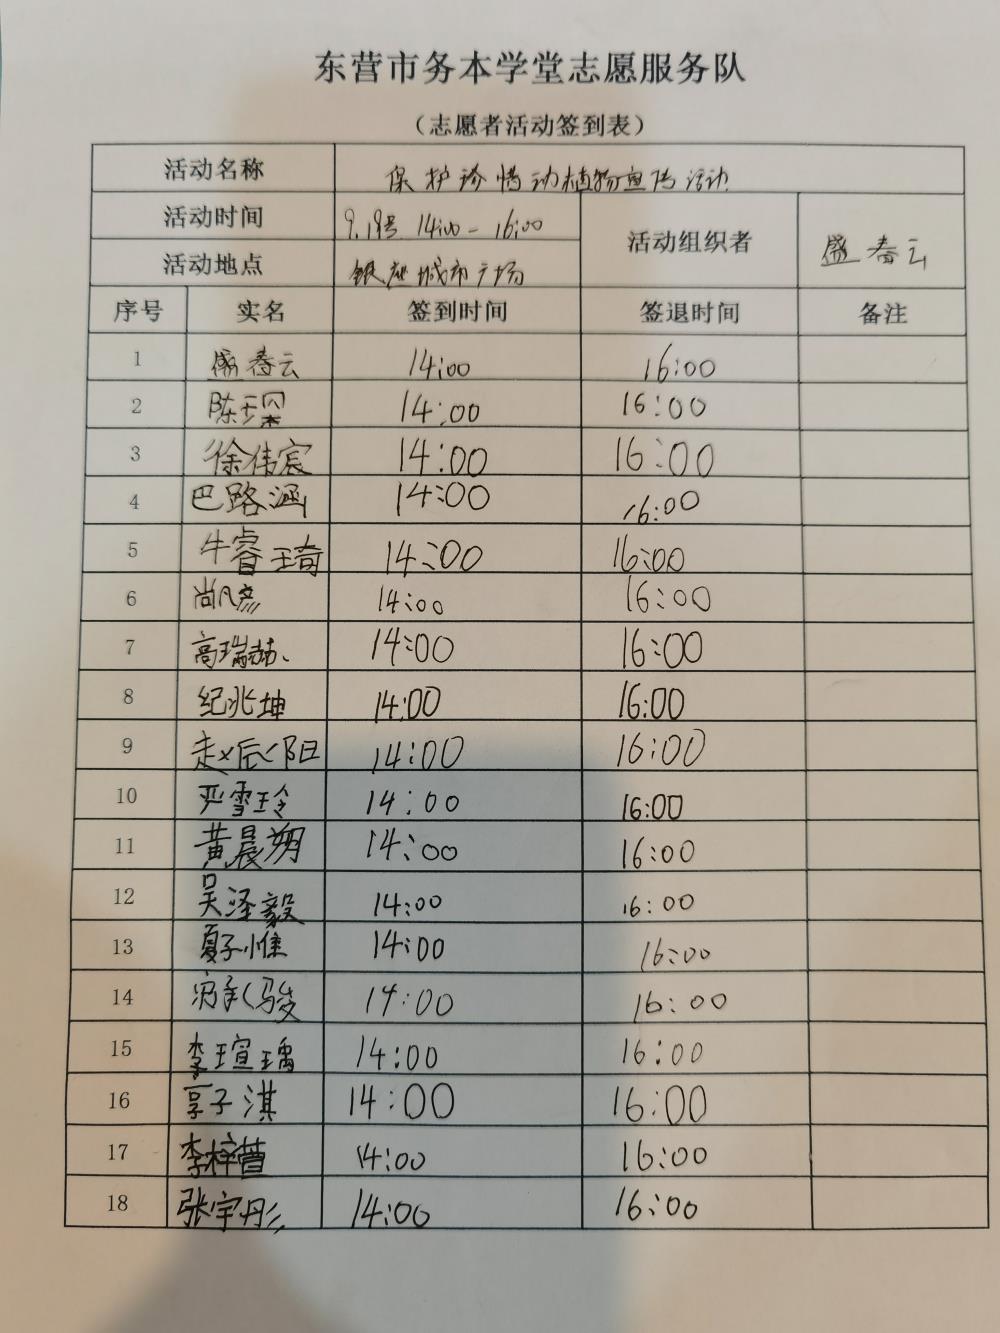 东营市务本学堂志愿服务队
（志愿者活动签到表）
活动名称 保护珍惜动植物宣传活动
活动时间 9.19号 14:00-16:00 活动组织者 盛春云
活动地点 银座城市广场
序号 实名 签到时间 签退时间 备注
1 盛春云 14:00 16:00
2 14:00 16:00
3 徐伟宸 14:00 16:00
4 巴路涵 14:00 16:00
5 牛睿琦 14:00 16:00
6 尚凡彪 14:00 16:00
7 高瑞喆 14:00 16:00
8 纪兆坤 14:00 16:00
9 赵辰阳 14:00 16:00
10 严雪玲 14:00 16:00
11 黄晨翔 14:00 16:00
12 吴泽毅 14:00 16:00
13 夏子惟 14:00 16:00
14 14:00 16:00
15 李瑄瑀 14:00 16:00
16 郭子淇 14:00 16:00
17 李梓萱 14:00 16:00
18 张宇彤 14:00 16:00